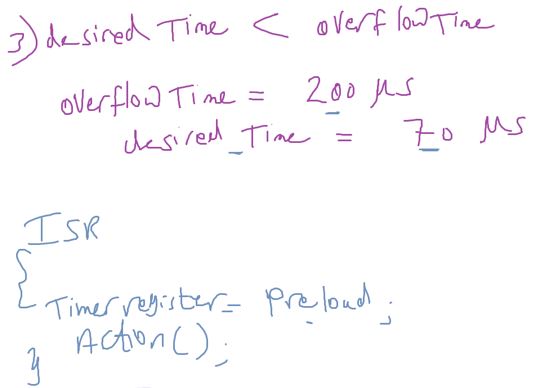 3) desired Time < overflowTime
overflow Time = 200 µs
desired_Time = 70 µs
ISR
{
Timer register = Preload;
Action();
}